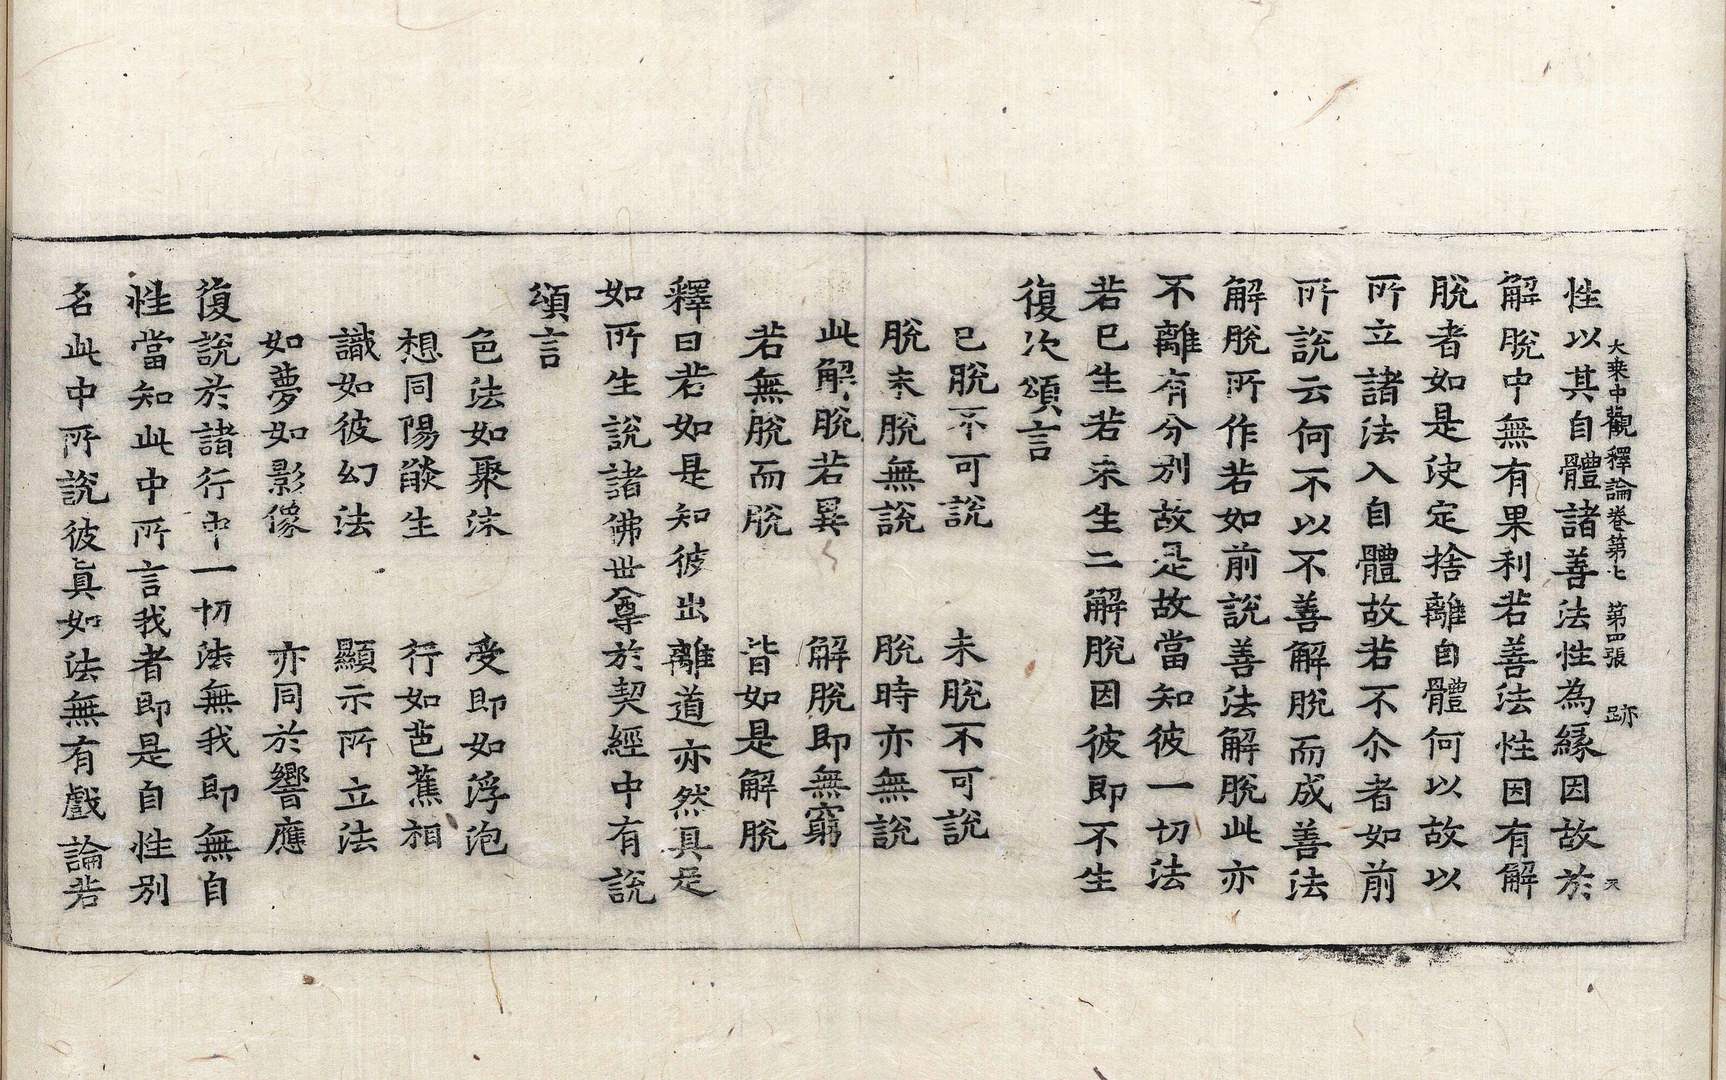 大乘中觀釋論卷第七　第四張　跡
性以其自體諸善法性為緣因故於
解脫中無有果利若善法性因有解
脫者如是決定捨離自體何以故以
所立諸法入自體故若不尒者如前
所說云何不以不善解脫而成善法
解脫所作若如前說善法解脫此亦
不離有分別故是故當知彼一切法
若已生若未生二解脫因彼即不生
復次頌言
已脫不可說　未脫不可說
脫未脫無說　脫時亦無說
此解脫若異　解脫即無窮
若無脫而脫　皆如是解脫
釋曰若如是知彼出離道亦然具足
如所生說諸佛世尊於契經中有說
頌言
色法如聚沫　受即如浮泡
想同陽燄生　行如芭蕉相
識如彼幻法　顯示所立法
如夢如影像　亦同於響應
復說於諸行中一切法無我即無自
性當知此中所言我者即是自性別
名此中所說彼真如法無有戲論若